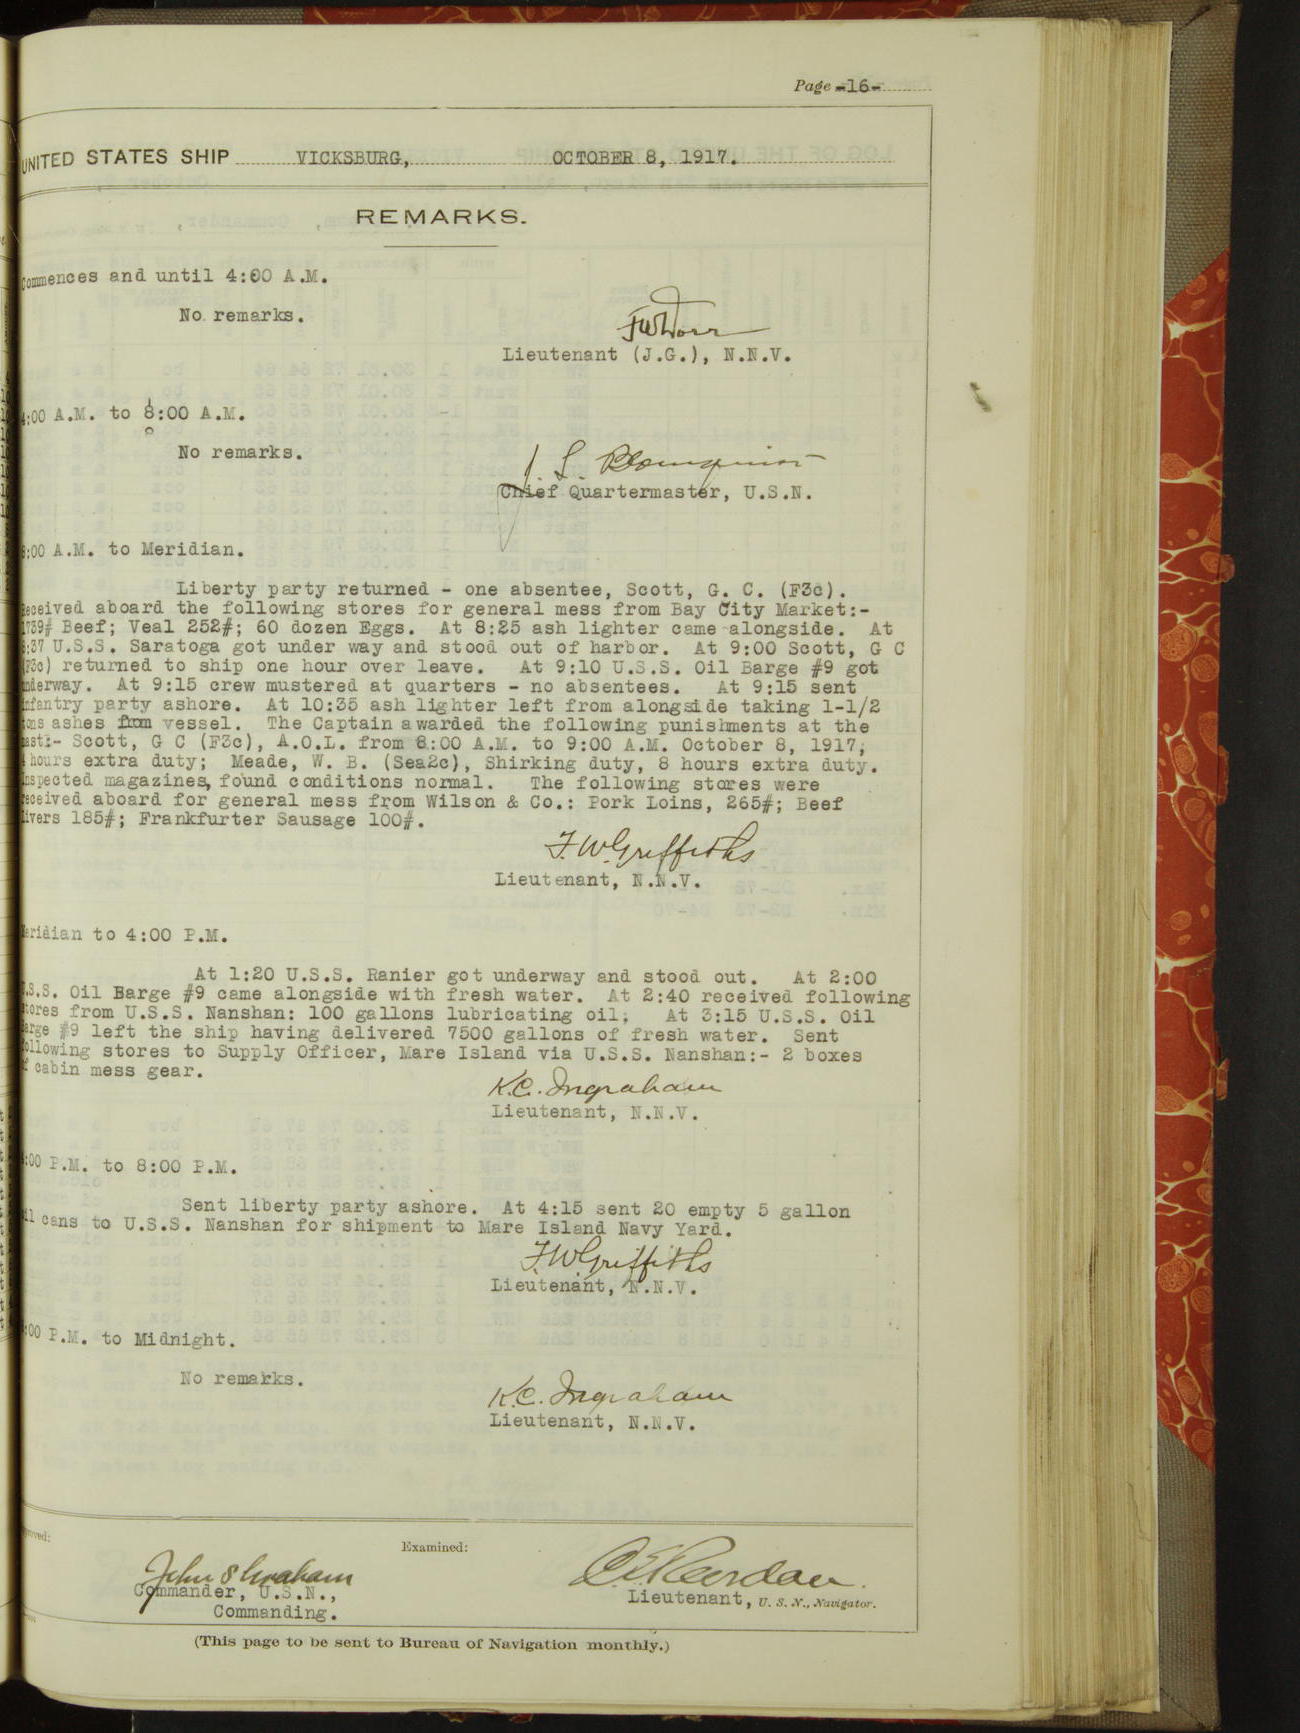 Page -16-
UNITED STATES SHIP VICKSBURG, OCTOBER 8, 1917.
REMARKS.
Commences and until 4:00 A.M.
No remarks.
Lieutenant (J.G.), N.N.V.
4:00 A.M. to 8:00 A.M.
No remarks.
J. L.
Chief Quartermaster, U.S.N.
8:00 A.M. to Meridian.
Liberty party returned - one absentee, Scott, G. C. (F3c).
Received aboard the following stores for general mess from Bay City Market:-
1739# Beef; Veal 252#; 60 dozen Eggs. At 8:25 ash lighter came alongside. At
:37 U.S.S. Saratoga got under way and stood out of harbor. At 9:00 Scott, G C
(F3c) returned to ship one hour over leave. At 9:10 U.S.S. Oil Barge #9 got
underway. At 9:15 crew mustered at quarters - no absentees. At 9:15 sent
infantry party ashore. At 10:35 ash lighter left from alongside taking 1-1/2
tons ashes from vessel. The Captain awarded the following punishments at the
mast:- Scott, G C (F3c), A.O.L. from 8:00 A.M. to 9:00 A.M. October 8, 1917,
hours extra duty; Meade, W. B. (Sea2c), Shirking duty, 8 hours extra duty.
Inspected magazines, found conditions normal. The following stores were
received aboard for general mess from Wilson & Co.: Pork Loins, 265#; Beef
Livers 185#; Frankfurter Sausage 100#.
F. W. Griffiths
Lieutenant, N.N.V.
Meridian to 4:00 P.M.
At 1:20 U.S.S. Ranier got underway and stood out. At 2:00
U.S.S. Oil Barge #9 came alongside with fresh water. At 2:40 received following
stores from U.S.S. Nanshan: 100 gallons lubricating oil; At 3:15 U.S.S. Oil
Barge #9 left the ship having delivered 7500 gallons of fresh water. Sent
following stores to Supply Officer, Mare Island via U.S.S. Nanshan:- 2 boxes
of cabin mess gear.
K.C. Ingraham
Lieutenant, N.N.V.
4:00 P.M. to 8:00 P.M.
Sent liberty party ashore. At 4:15 sent 20 empty 5 gallon
oil cans to U.S.S. Nanshan for shipment to Mare Island Navy Yard.
F. W. Griffiths
Lieutenant, N.N.V.
8:00 P.M. to Midnight.
No remarks.
K.C. Ingraham
Lieutenant, N.N.V.
Approved:
Examined:
John S Graham
Commander, U.S.N.,
Commanding.
C E Reordan.
Lieutenant, U. S. N., Navigator.
(This page to be sent to Bureau of Navigation monthly.)